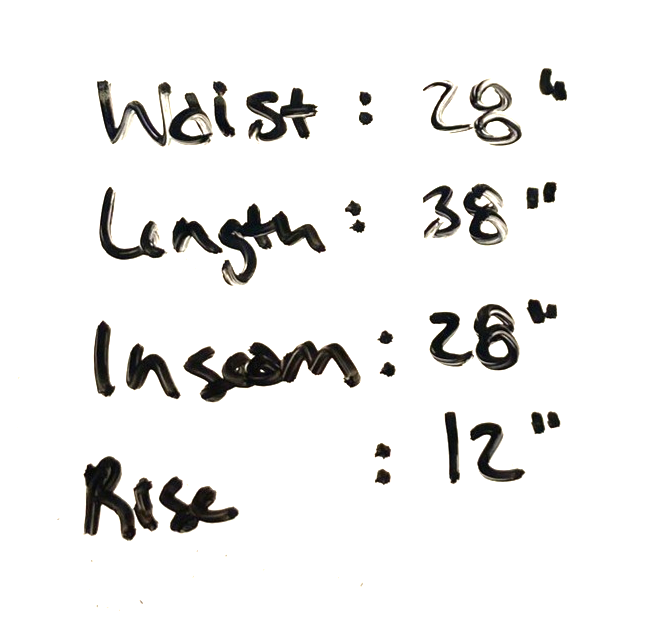 Waist : 28"
Length : 38"
Inseam : 28"
Rise : 12"